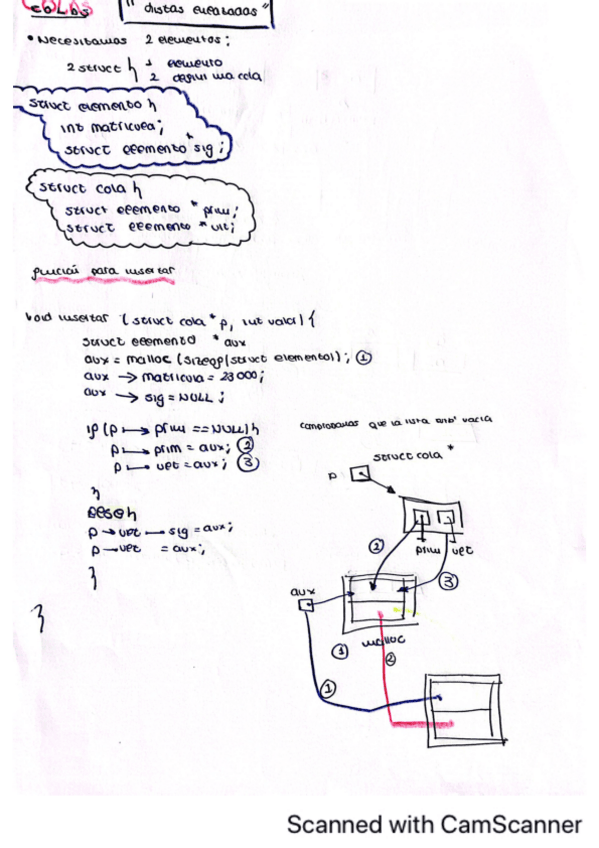 COLAS
"Listas enlazadas"
• Necesitamos 2 elementos:
2 struct { 1 elemento
2 definir una cola
struct elemento {
int matricula;
struct elemento * sig;
struct cola {
struct elemento * prim;
struct elemento * ult;
función para insertar
void insertar (struct cola * p, int valor) {
struct elemento * aux
aux = malloc (sizeof(struct elemento)); ①
aux → matricula = 23000;
aux → sig = NULL;
if (p → prim == NULL) {
comprobamos que la lista está vacía
p → prim = aux; ②
p → ult = aux; ③
}
else {
p → ult → sig = aux;
p → ult = aux;
}
}
struct cola *
p
prim ult
②
③
aux
malloc
①
②
①
Scanned with CamScanner